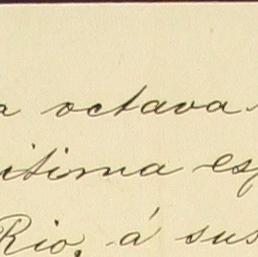 a octava
itima esp
Rio, á sus